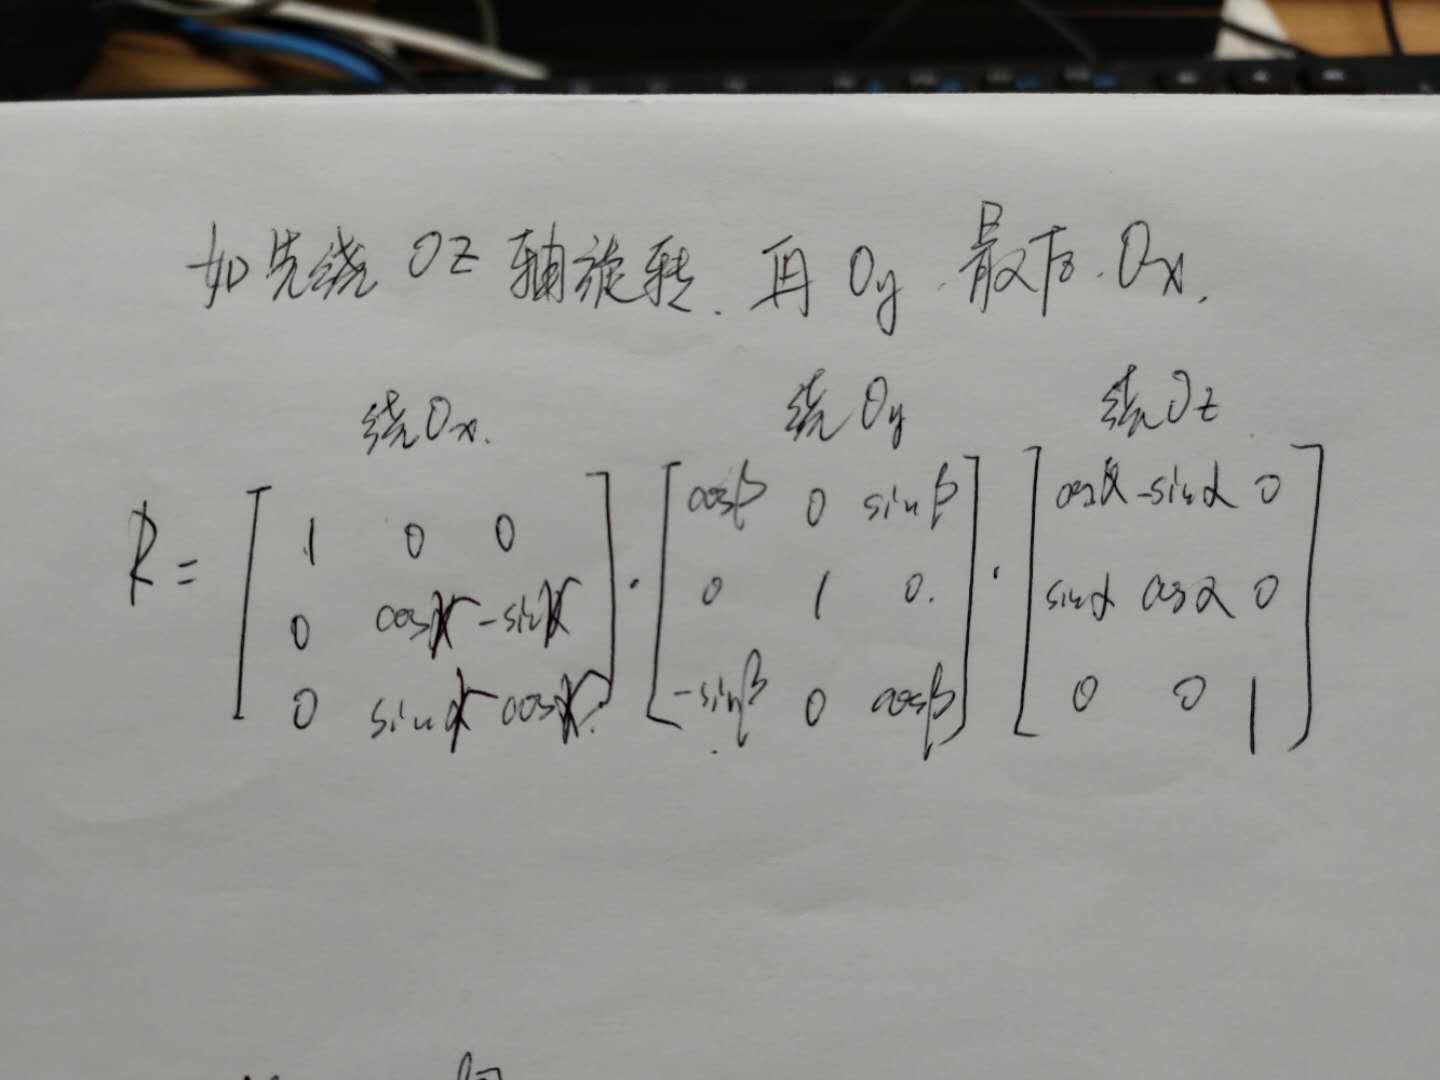 如先绕OZ轴旋转.再Oy.最后.Ox.
绕Ox. 绕Oy 绕Oz
R = [1 0 0; 0 cosγ -sinγ; 0 sinγ cosγ] · [cosβ 0 sinβ; 0 1 0.; -sinβ 0 cosβ] · [cosα -sinα 0; sinα cosα 0; 0 0 1]